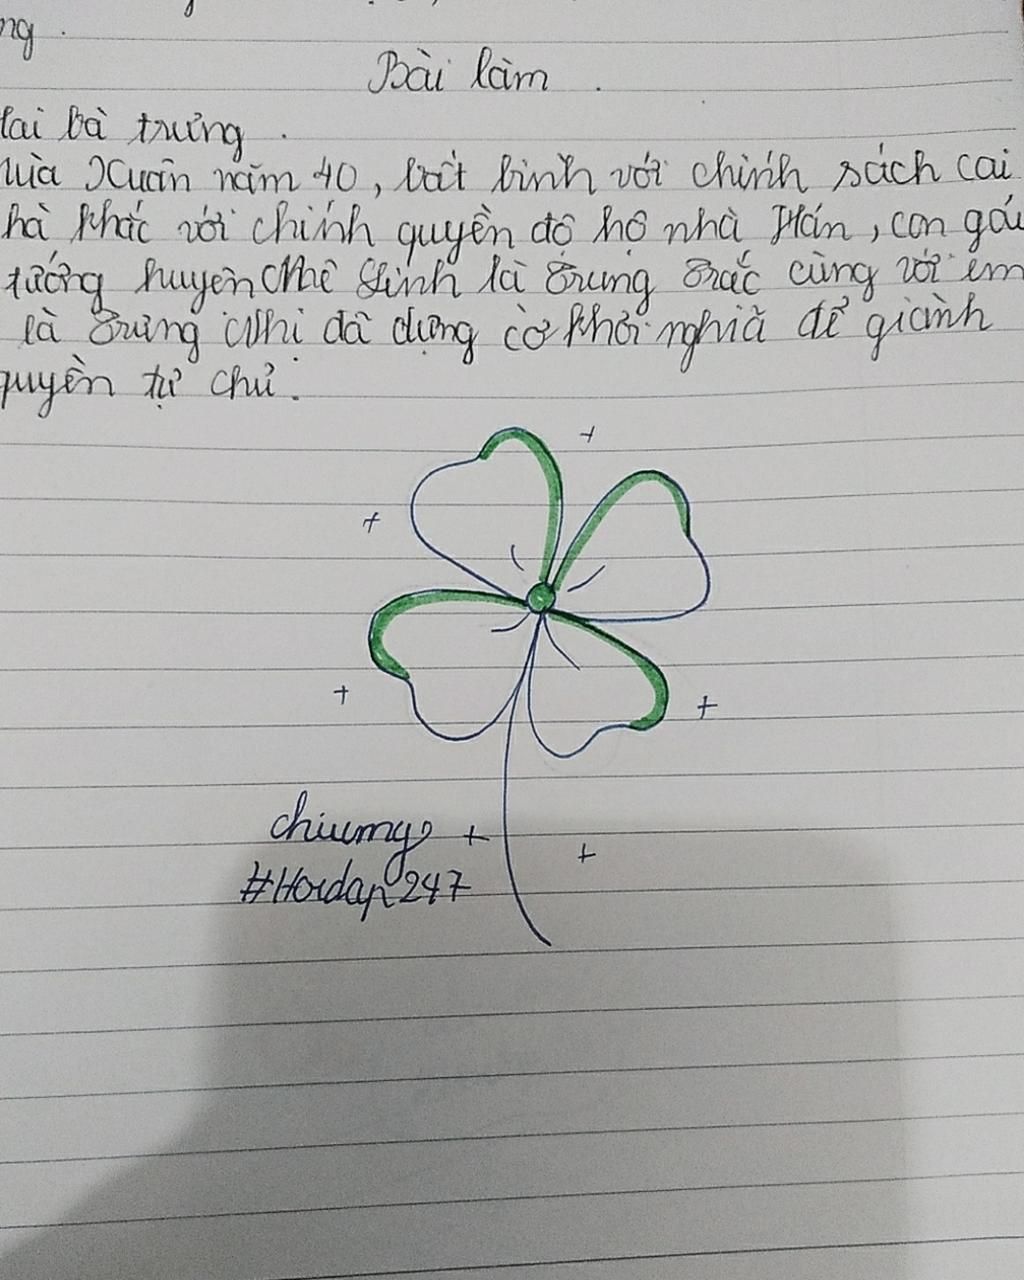 ng.
Bài làm.
lai bà trưng.
luà Xuân năm 40, bất bình với chính sách cai
hà khắc với chính quyền đô hộ nhà Hán, con gái
tướng huyện Mê Linh là Trưng Trắc cùng với em
là Trưng Nhị đã dựng cờ khởi nghĩa để giành
quyền tự chủ.
chiumy
#Hoidap247